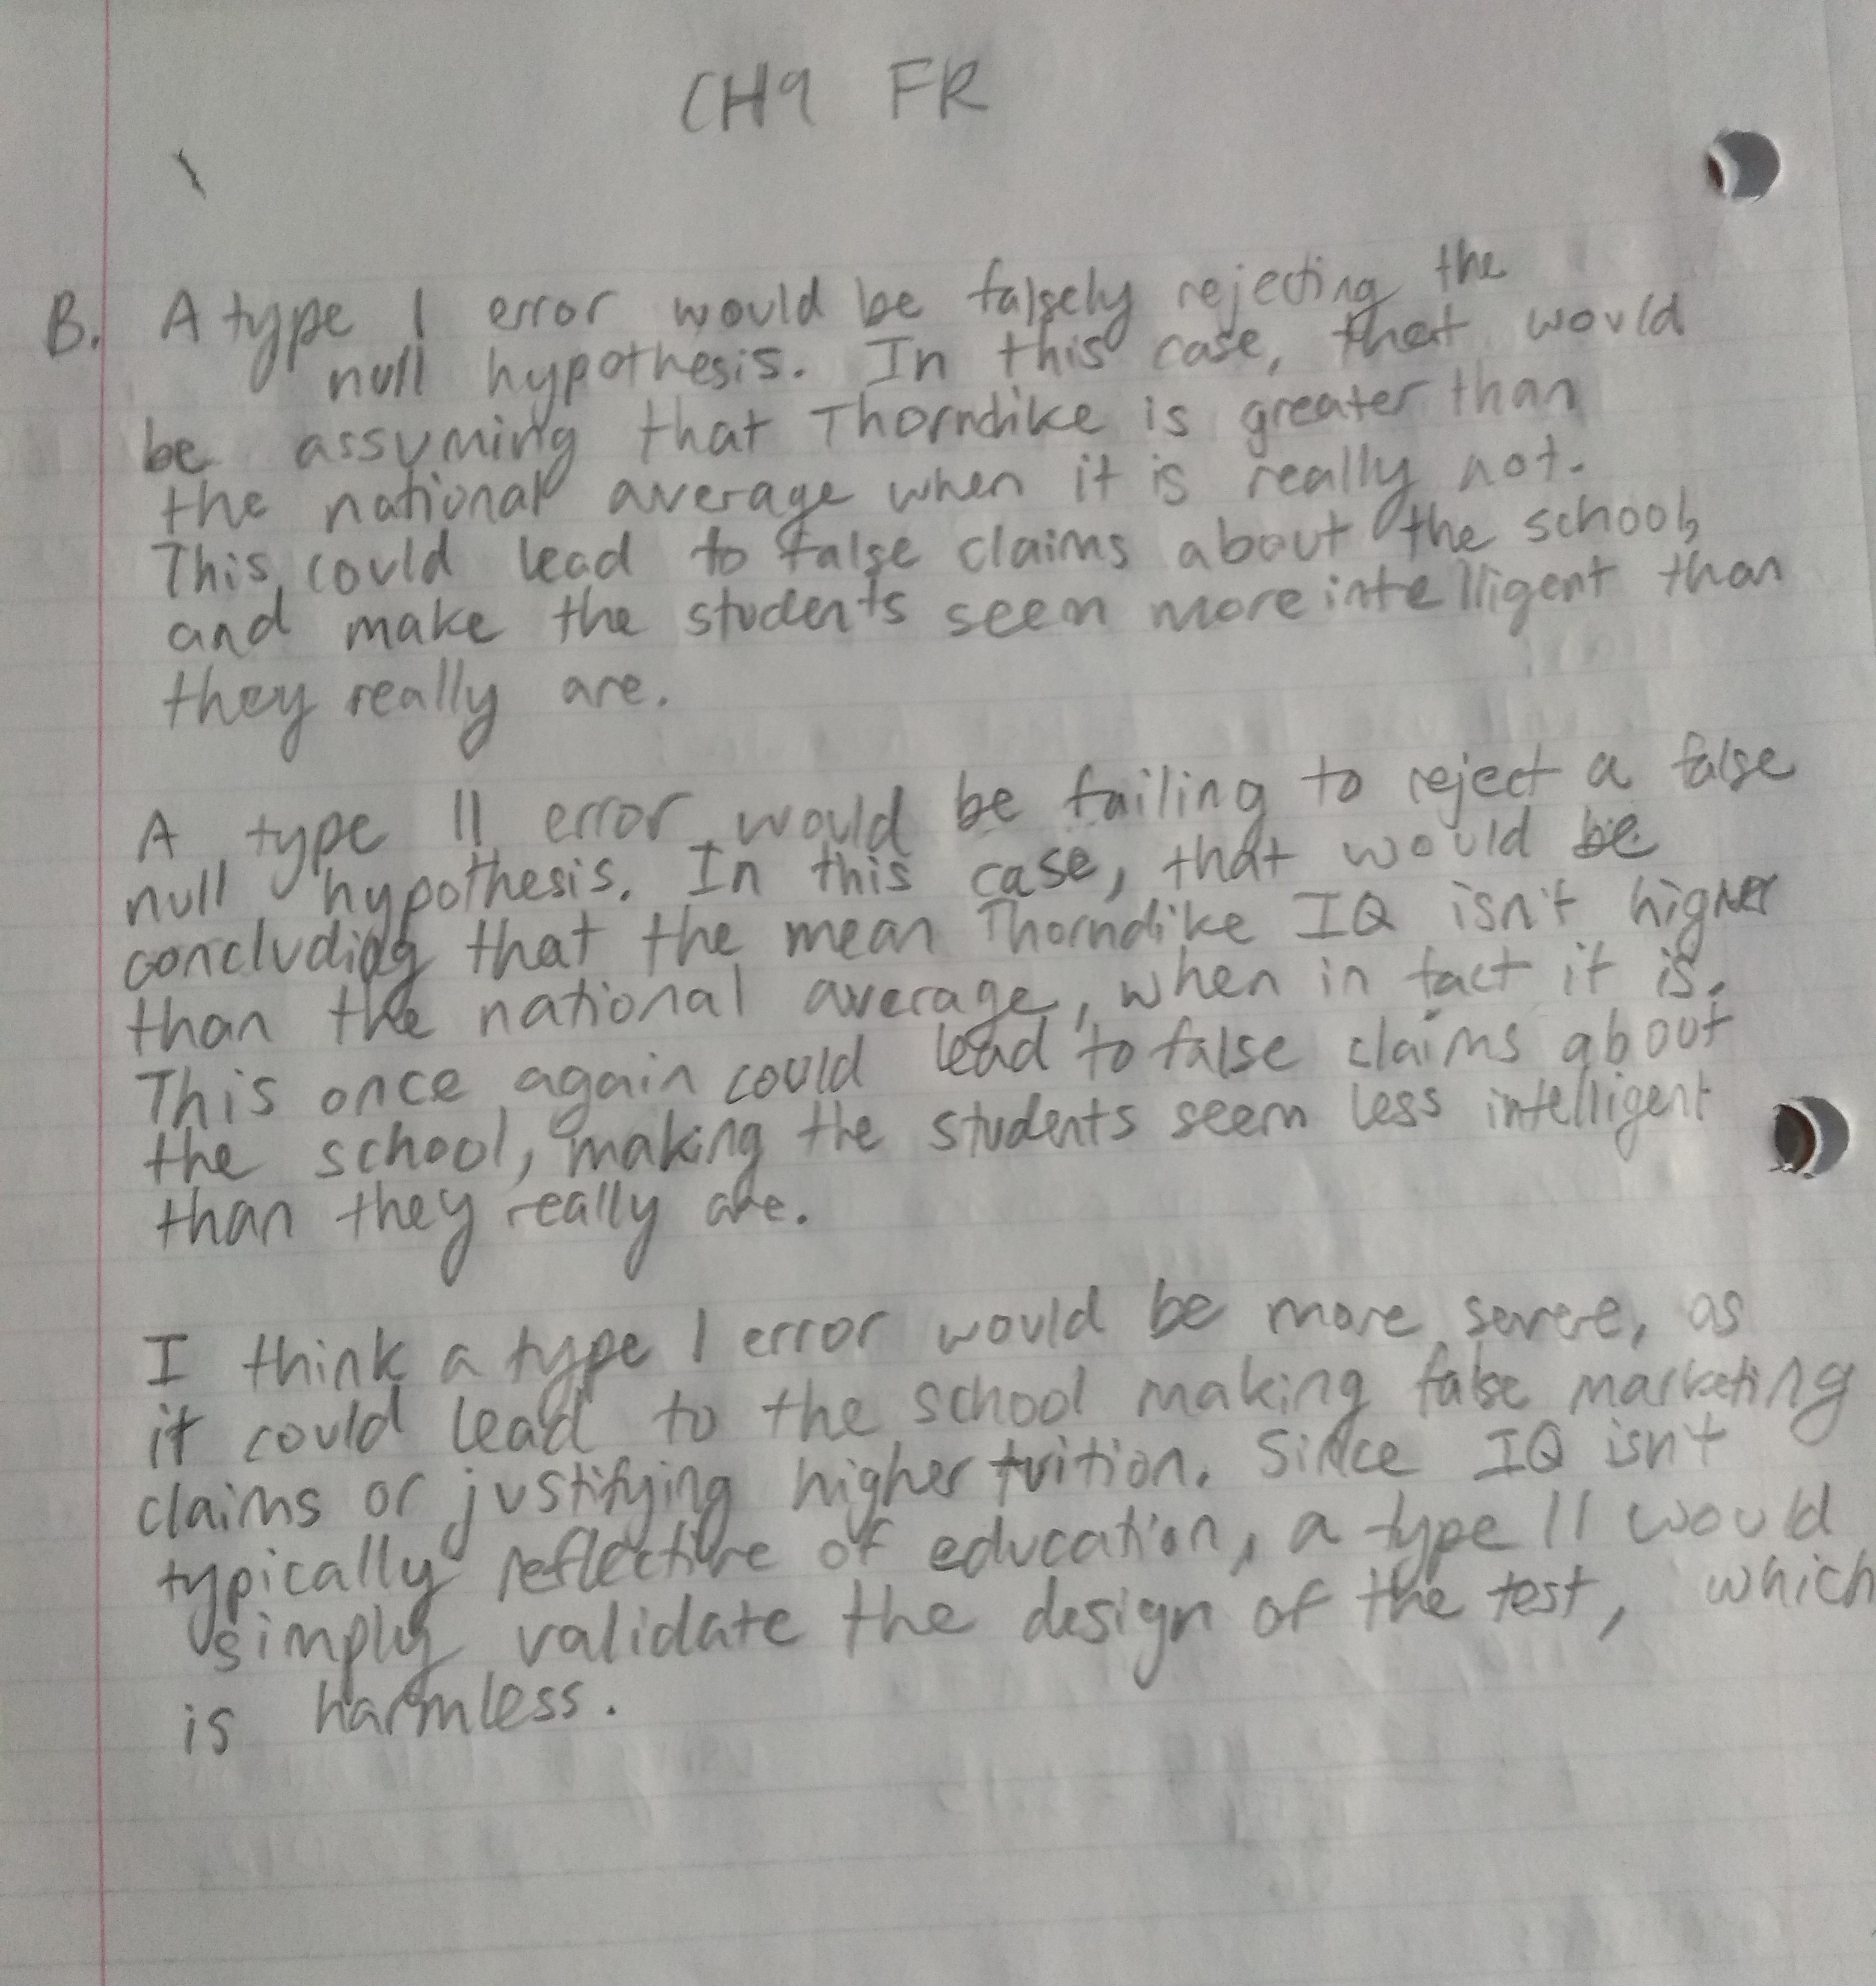 CH9 FR
B. A type I error would be falsely rejecting the
null hypothesis. In this case, that would
be assuming that Thorndike is greater than
the national average when it is really not.
This could lead to false claims about the school,
and make the students seem more intelligent than
they really are.
A type II error would be failing to reject a false
null hypothesis. In this case, that would be
concluding that the mean Thorndike IQ isn't higher
than the national average, when in fact it is.
This once again could lead to false claims about
the school, making the students seem less intelligent
than they really are.
I think a type I error would be more severe, as
it could lead to the school making false marketing
claims or justifying higher tuition. Since IQ isn't
typically reflective of education, a type II would
simply validate the design of the test, which
is harmless.